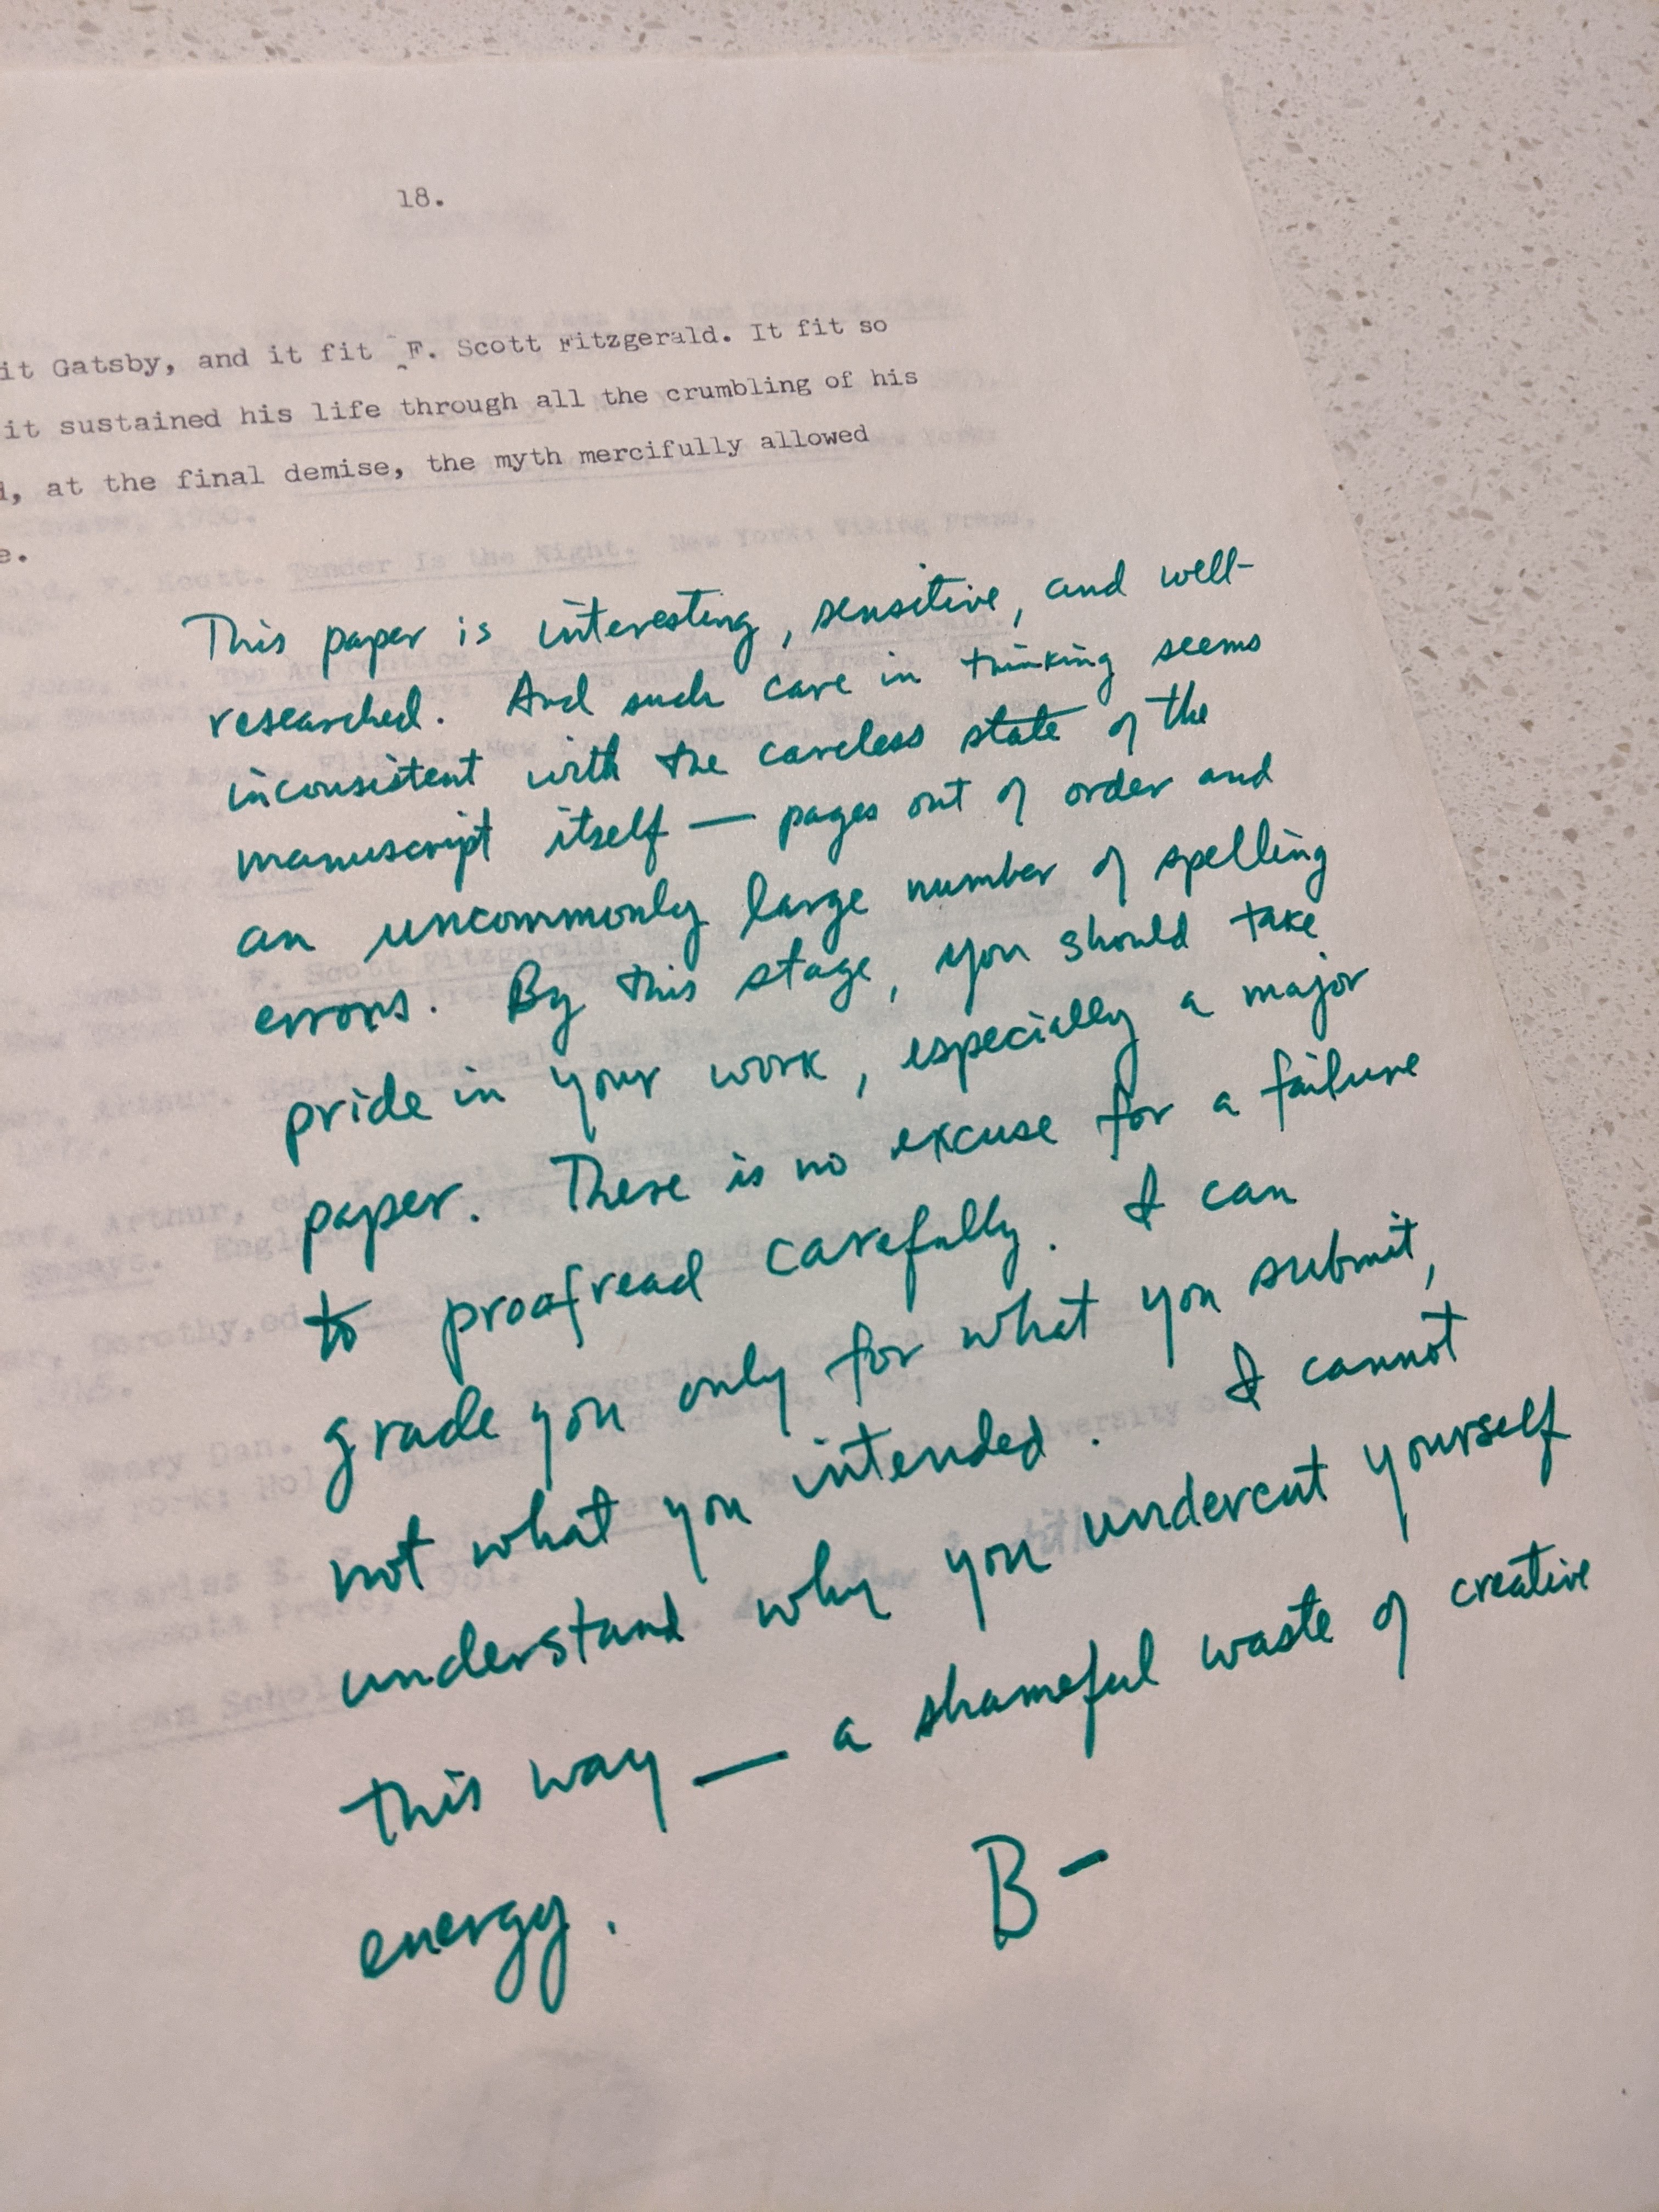 18.
it Gatsby, and it fit F. Scott Fitzgerald. It fit so
it sustained his life through all the crumbling of his
, at the final demise, the myth mercifully allowed
e.
This paper is interesting, sensitive, and well-
researched. And such care in thinking seems
inconsistent with the careless state of the
manuscript itself — pages out of order and
an uncommonly large number of spelling
errors. By this stage, you should take
pride in your work, especially a major
paper. There is no excuse for a failure
to proofread carefully. I can
grade you only for what you submit,
not what you intended. I cannot
understand why you undercut yourself
this way — a shameful waste of creative
energy. B-